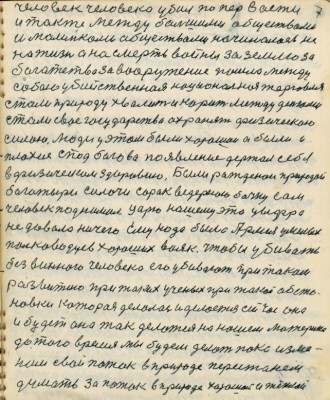 человек человека убил по пер вости
и также между большими обществами
и маленьким обществами начиналась не
на жизнь а на смерть войны за землю за
богатство за вооружение пошло между
собою убийственная национальная торговля
стали природу хвалить и корить между
стали свое государство охранять физическою
силою, люди у этом были хорошии а были и
плохие с под бога во появление держал себя
в физическом здоровию, были рождены природой
богатыри силачи сорак ведерную бочку сам
человек поднимал царю нашему это лидера
не давало ничего ему надо была Армия умелых
полководцев хороших вояк. чтобы убивать
без винного человека его убивают при таком
развитию при таких ученых при такой обста-
новки которая делалась и делается сейчас она
и будет она так делатся на нашем материка
до того время мы будем делать пока изме-
ним свой поток в природе перестанем
думать за поток в природе хороший и теплый